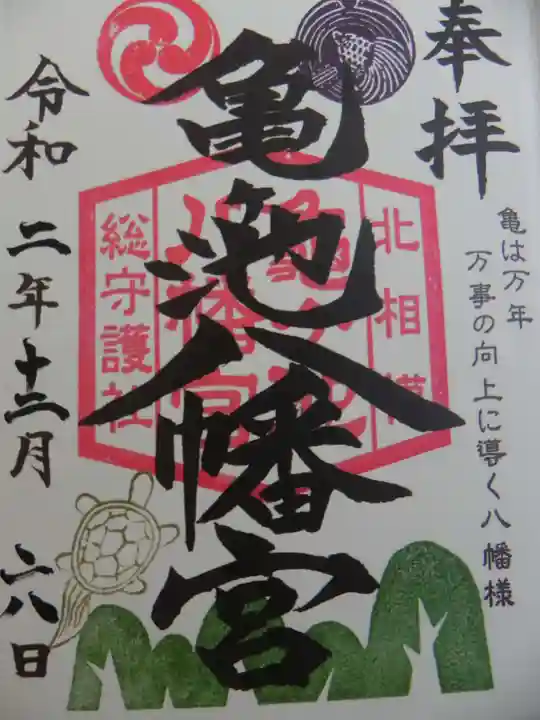 奉拝
亀は万年
万事の向上に導く八幡様
亀池八幡宮
北相模
亀ヶ池
八幡宮
総守護社
令和二年十二月二八日